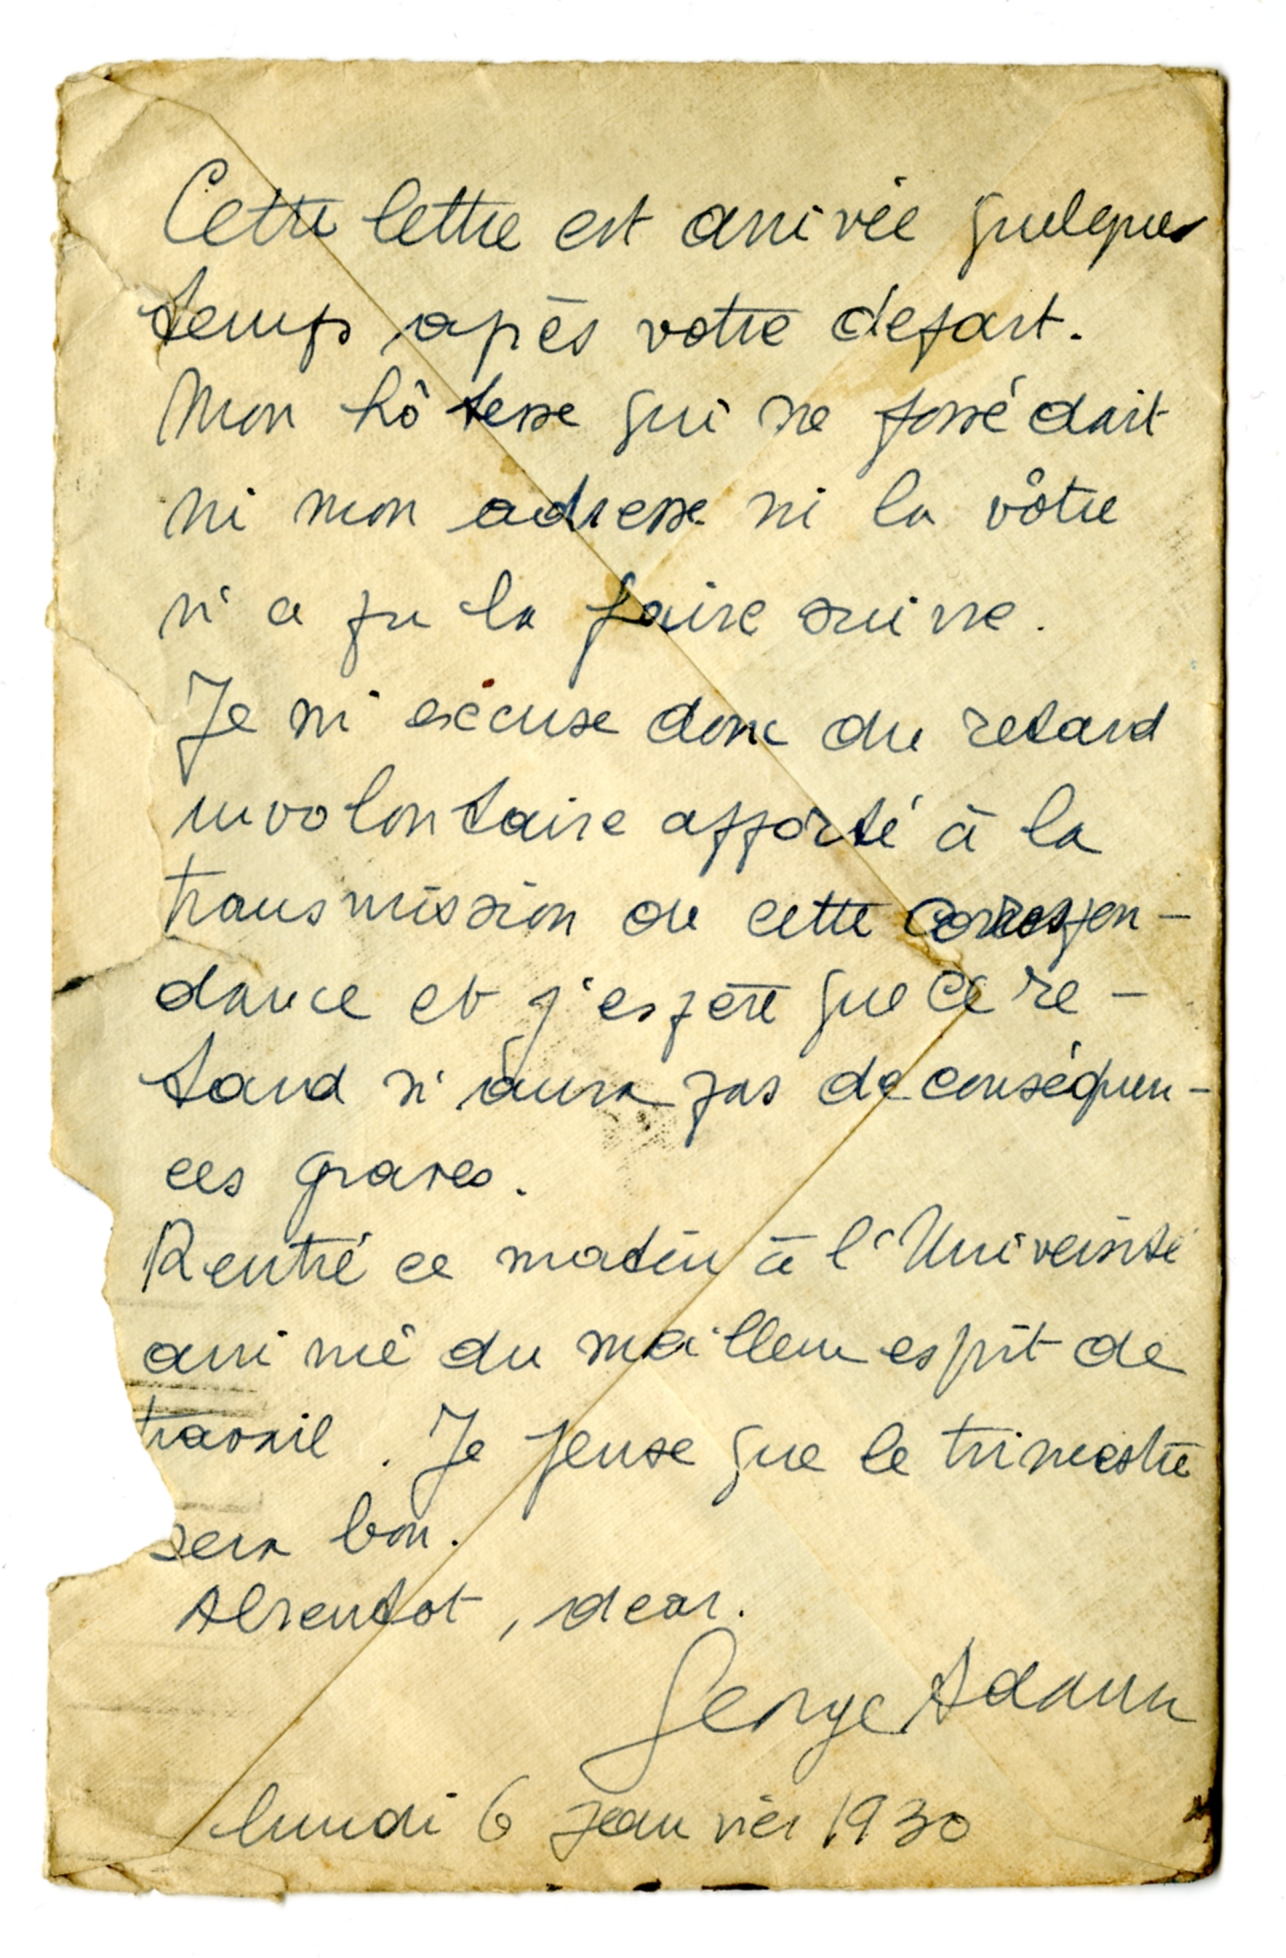 Cette lettre est arrivée quelques
temps après votre départ.
Mon hôtesse qui ne possédait
ni mon adresse ni la vôtre
n'a pu la faire suivre.
Je m'excuse donc du retard
involontaire apporté à la
transmission de cette correspon-
dance et j'espère que ce re-
tard n'aura pas de conséquen-
ces graves.
Rentré ce matin à l'Université
animé du meilleur esprit de
travail. Je pense que le trimestre
sera bon.
A bientot, dear.
George Adam
lundi 6 janvier 1930